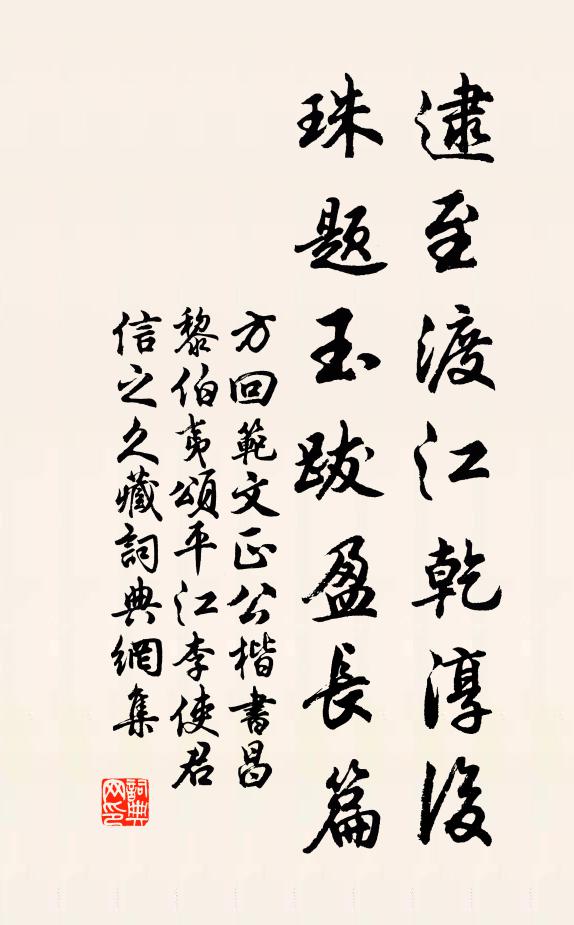 逮至渡江乾淳後
珠題玉跋盈長篇
方回範文正公楷書昌
黎伯夷頌平江李使君
信之久藏詞典網集
詞典网印